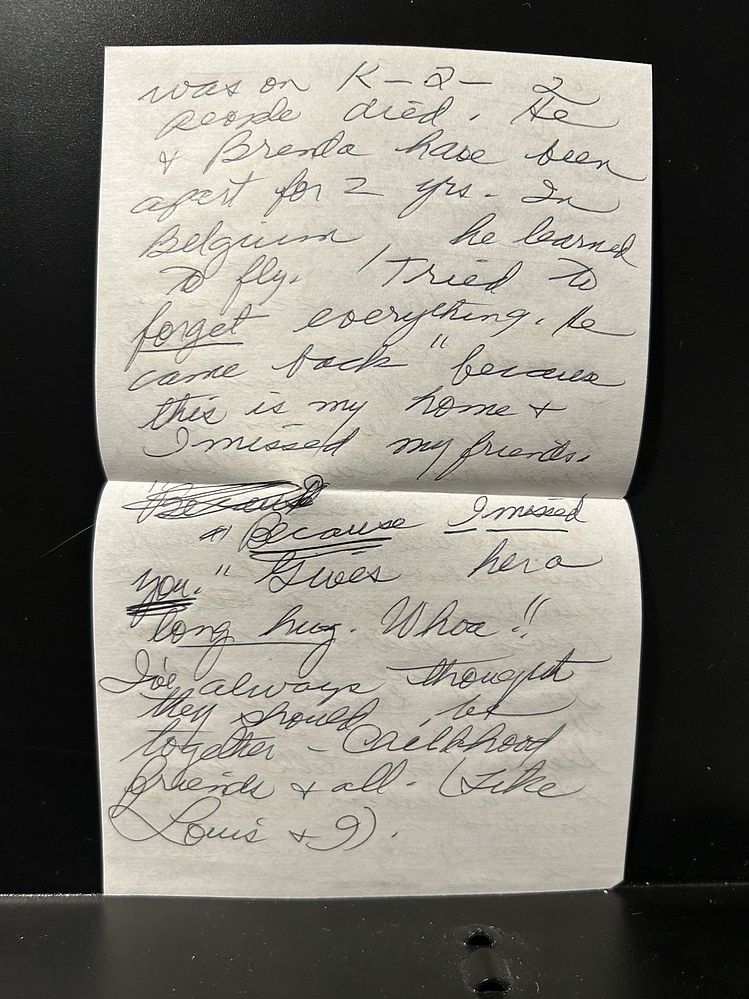 was on K-2- 2
people died. He
& Brenda have been
apart for 2 yrs. In
Belgium he learned
to fly. Tried to
forget everything. He
came back "because
this is my home +
I missed my friends.
"Because
"Because I missed
you." Gives her a
long hug. Whoa!!
I've always thought
they should be
together - Childhood
friends & all. (Like
Louis + I).